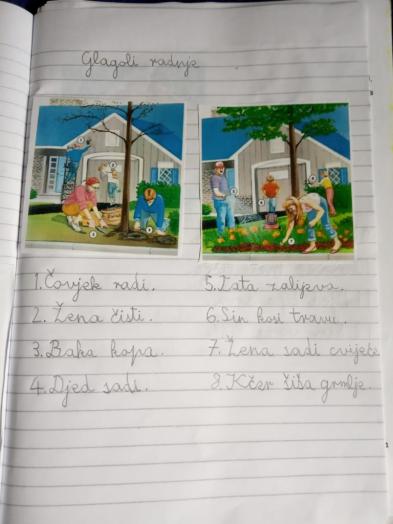 Glagoli radnje
1. Čovjek radi.
2. Žena čisti.
3. Baka kopa.
4. Djed sadi.
5. Tata zalijeva.
6. Sin kosi travu.
7. Žena sadi cvijeće
8. Kćer šiša grmlje.